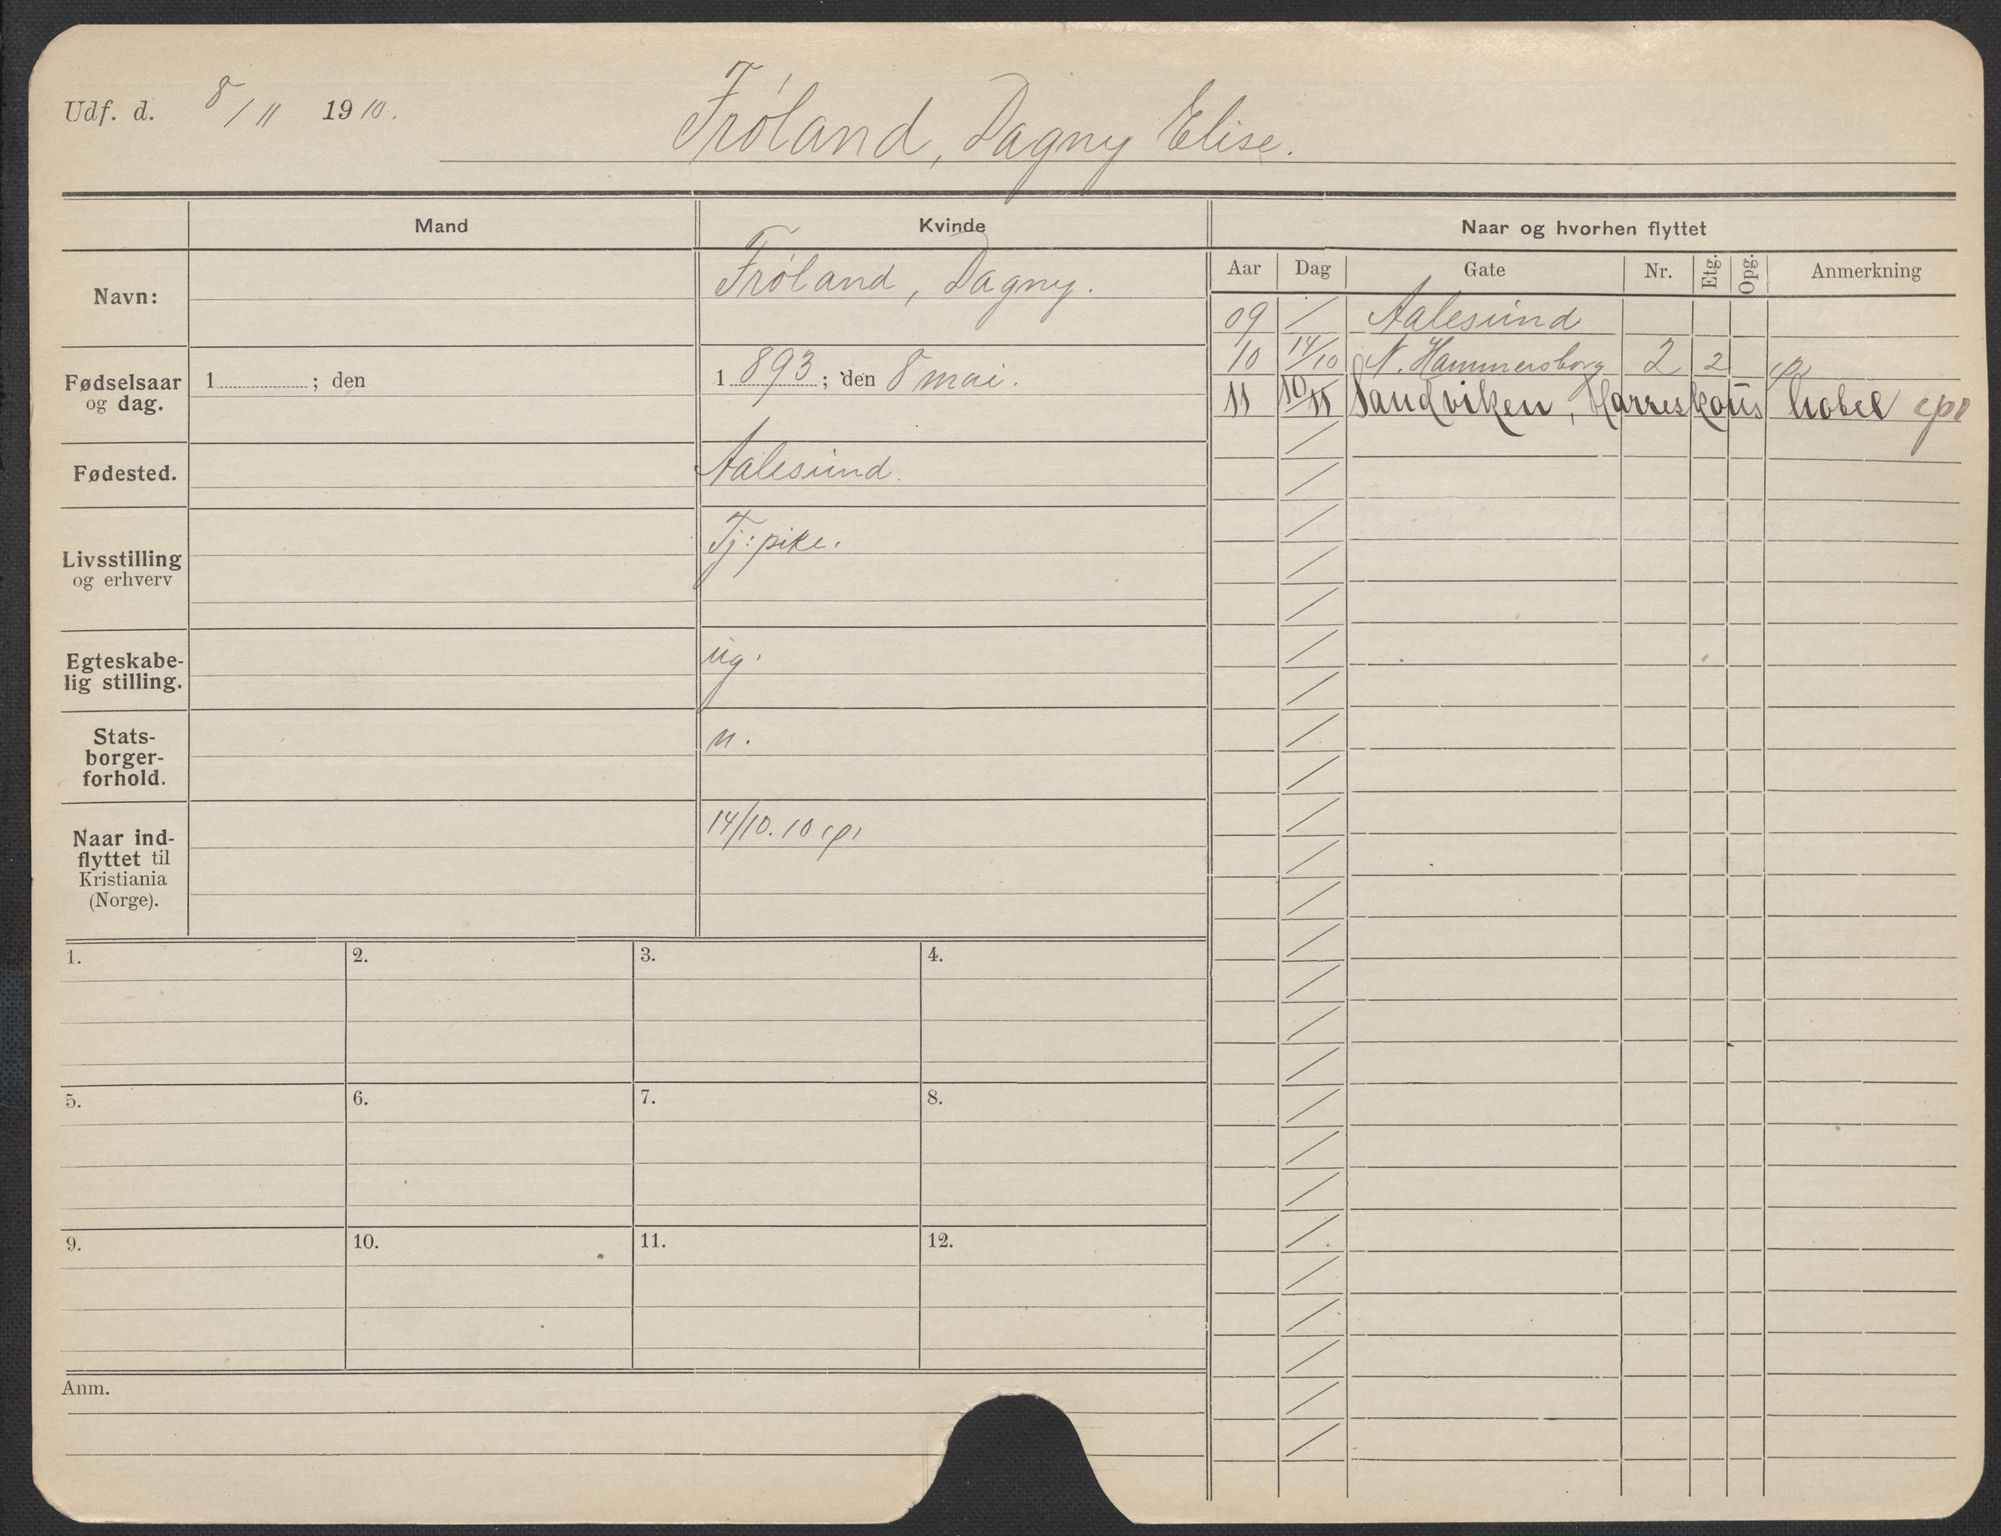 Udf. d. 8/11 1910.
Frøland, Dagny Elise.
Mand Kvinde Naar og hvorhen flyttet
Aar Dag Gate Nr. Etg. Opg. Anmerkning
Navn: Frøland, Dagny.
Fødselsaar og dag. 1 ; den 1893; den 8 mai.
Fødested. Aalesund.
Livsstilling og erhverv Tj: pike.
Egteskabe-
lig stilling. ug.
Stats-
borger-
forhold. n.
Naar ind-
flyttet til
Kristiania
(Norge). 14/10. 10
09 / Aalesund
10 14/10 N. Hammersborg 2 2
11 10/11 Sandviken,
1. 2. 3. 4.
5. 6. 7. 8.
9. 10. 11. 12.
Anm.